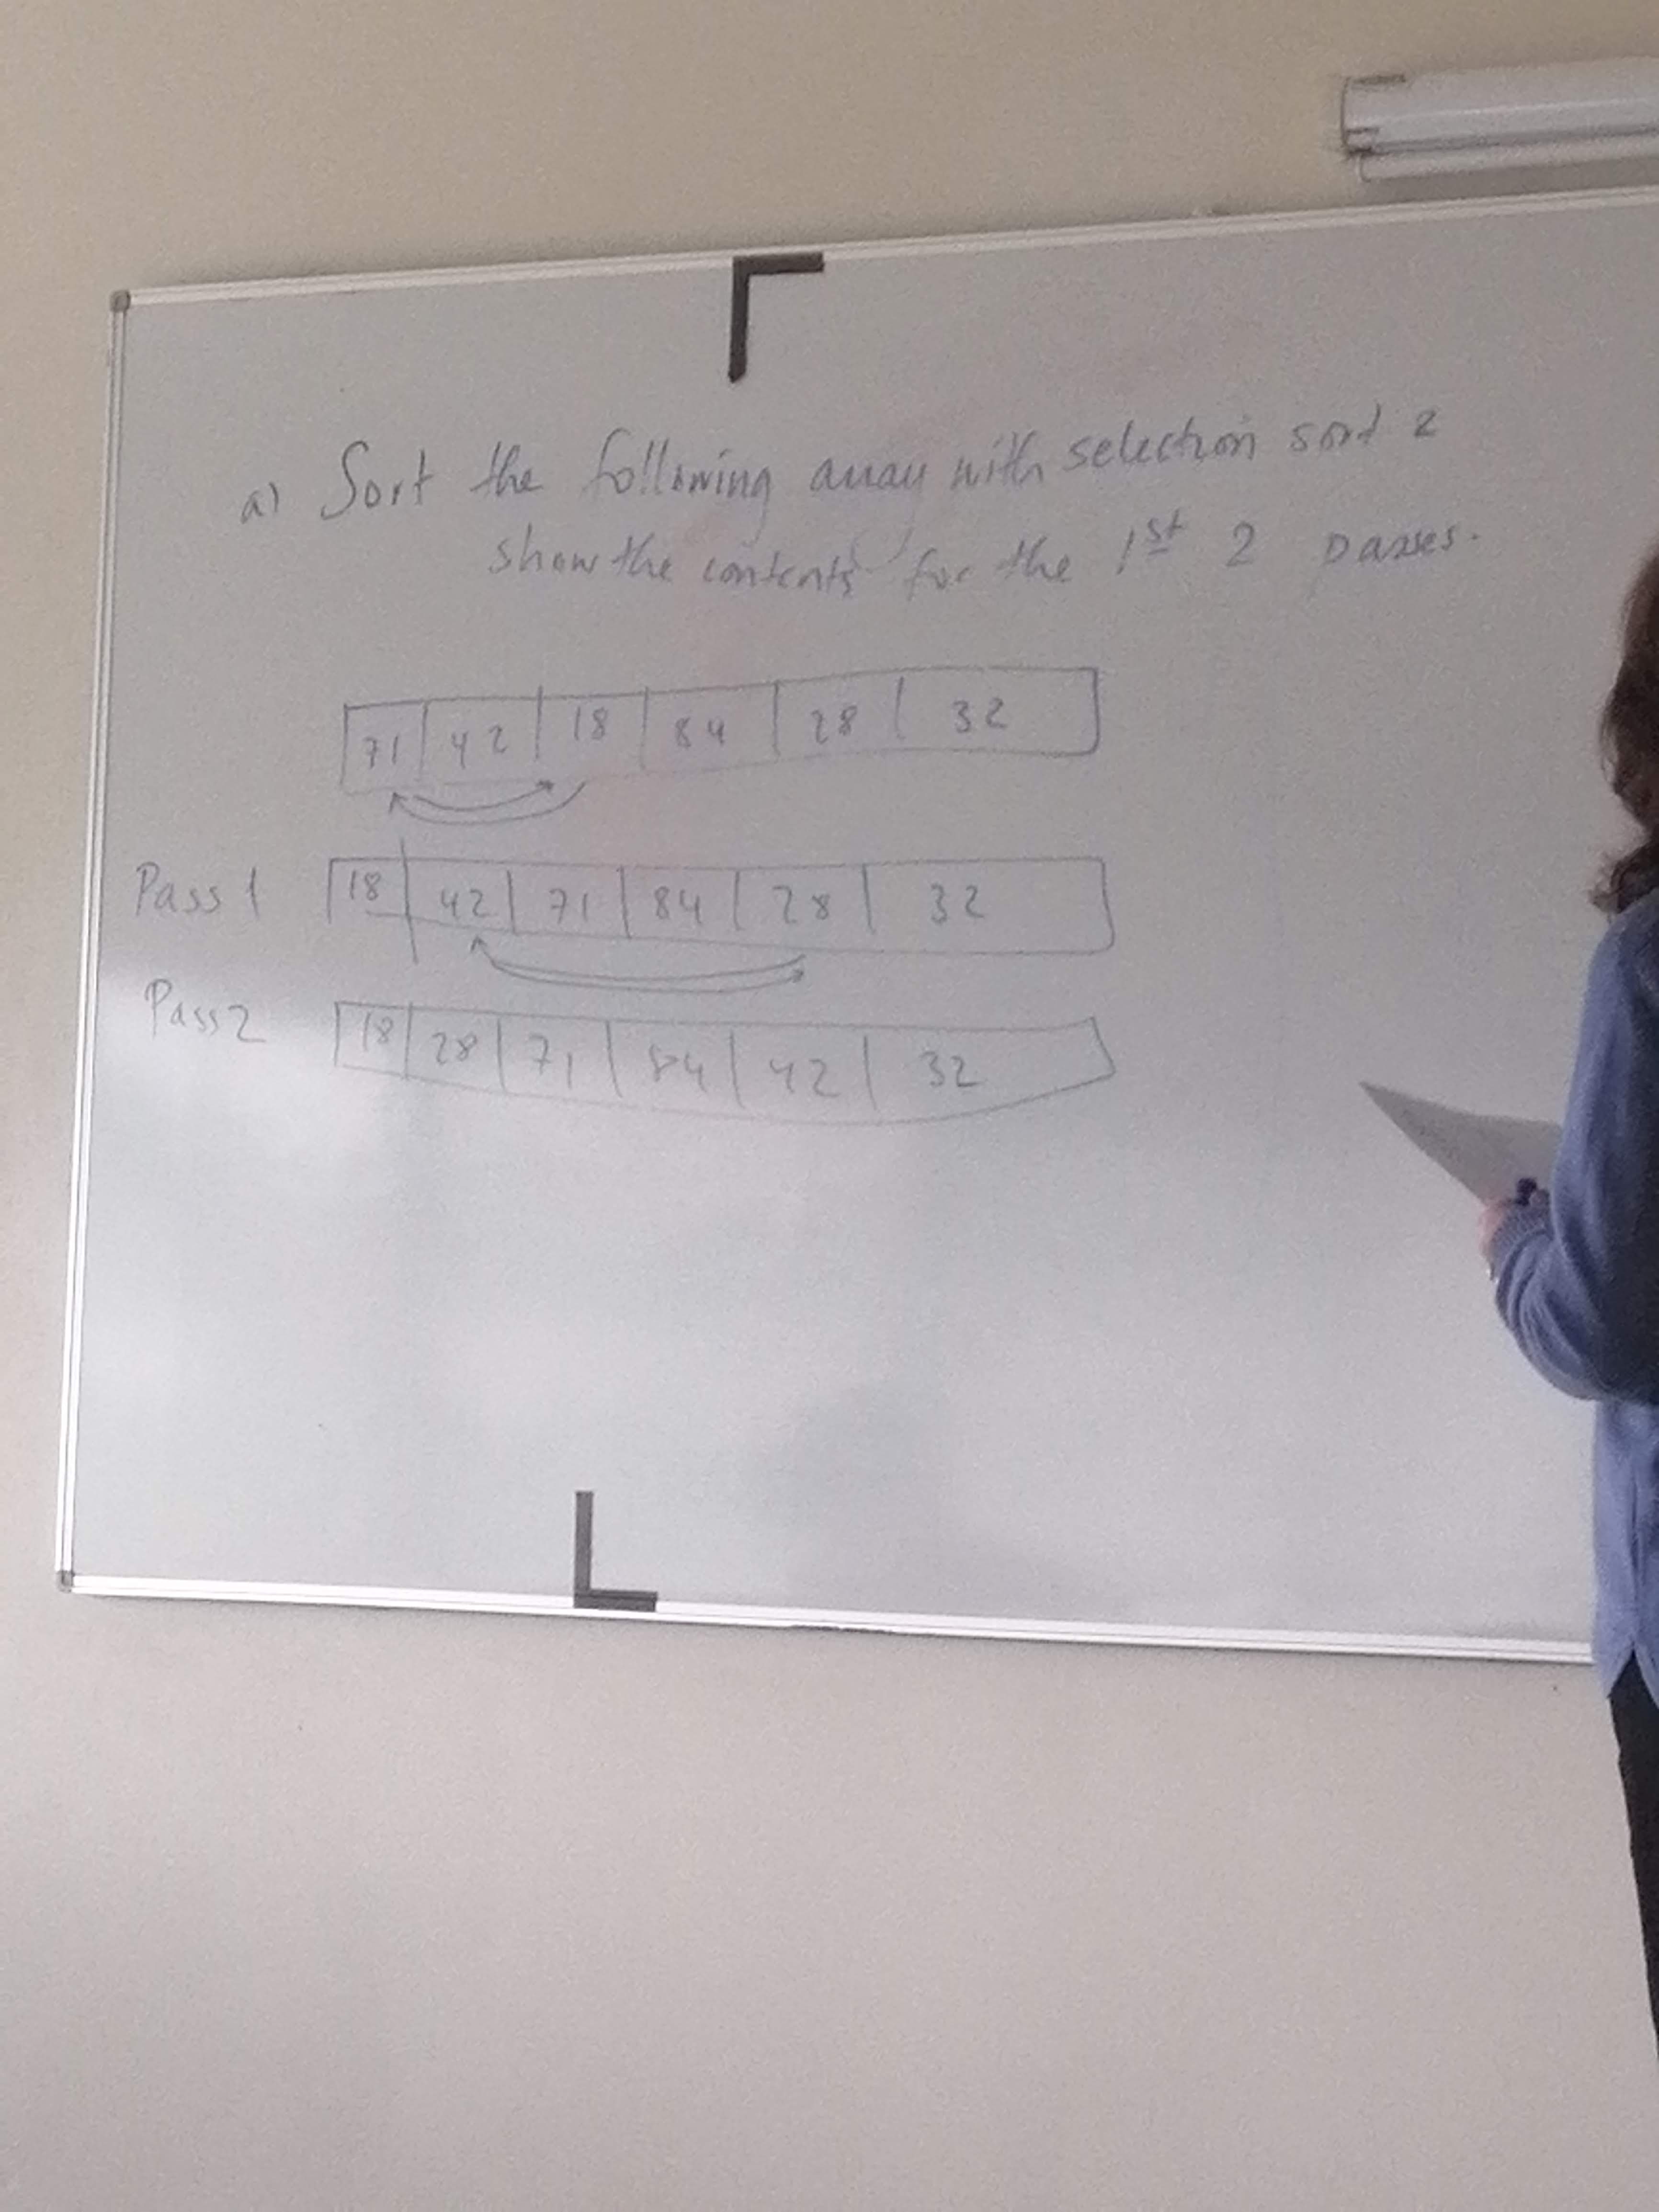 a) Sort the following array with selection sort 2
show the contents for the 1st 2 passes.
71 42 18 84 28 32
Pass 1 18 42 71 84 28 32
Pass 2 18 28 71 84 42 32